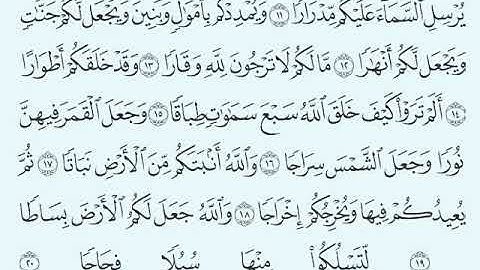 يُرْسِلِ ٱلسَّمَآءَ عَلَيْكُم مِّدْرَارًا ١١ وَيُمْدِدْكُم بِأَمْوَٰلٍ وَبَنِينَ وَيَجْعَل لَّكُمْ جَنَّٰتٍ
وَيَجْعَل لَّكُمْ أَنْهَٰرًا ١٢ مَّا لَكُمْ لَا تَرْجُونَ لِلَّهِ وَقَارًا ١٣ وَقَدْ خَلَقَكُمْ أَطْوَارًا
١٤ أَلَمْ تَرَوْا۟ كَيْفَ خَلَقَ ٱللَّهُ سَبْعَ سَمَٰوَٰتٍ طِبَاقًا ١٥ وَجَعَلَ ٱلْقَمَرَ فِيهِنَّ
نُورًا وَجَعَلَ ٱلشَّمْسَ سِرَاجًا ١٦ وَٱللَّهُ أَنۢبَتَكُم مِّنَ ٱلْأَرْضِ نَبَاتًا ١٧ ثُمَّ
يُعِيدُكُمْ فِيهَا وَيُخْرِجُكُمْ إِخْرَاجًا ١٨ وَٱللَّهُ جَعَلَ لَكُمُ ٱلْأَرْضَ بِسَاطًا
١٩ لِّتَسْلُكُوا۟ مِنْهَا سُبُلًا فِجَاجًا ٢٠